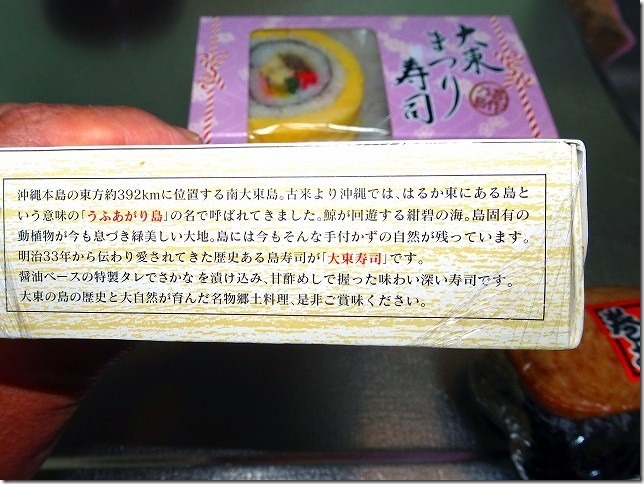 大東
まつり
寿司
沖縄本島の東方約392kmに位置する南大東島。古来より沖縄では、はるか東にある島と
いう意味の「うふあがり島」の名で呼ばれてきました。鯨が回遊する紺碧の海。島固有の
動植物が今も息づき緑美しい大地。島には今もそんな手付かずの自然が残っています。
明治33年から伝わり愛されてきた歴史ある島寿司が「大東寿司」です。
醤油ベースの特製タレでさかなを漬け込み、甘酢めしで握った味わい深い寿司です。
大東の島の歴史と大自然が育んだ名物郷土料理、是非ご賞味ください。